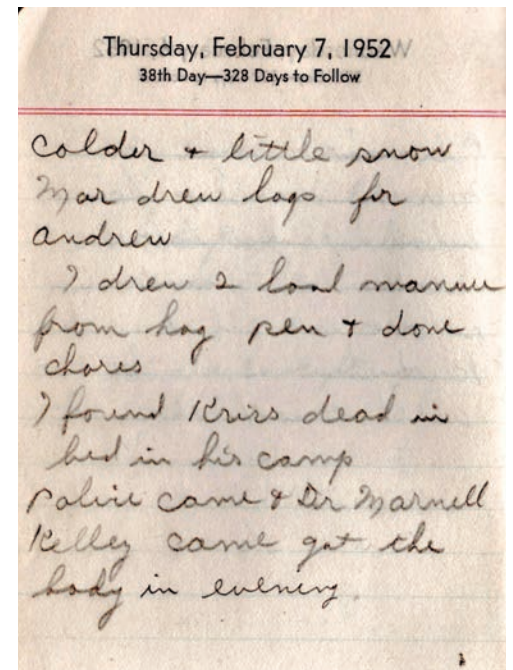 Thursday, February 7, 1952
38th Day—328 Days to Follow
Colder + little snow
Mar drew logs for
Andrew
I drew 2 load manure
from hog pen + done
chores
I found Kriss dead in
bed in his camp
Police came + Dr Marnell
Kelley came got the
body in evening.